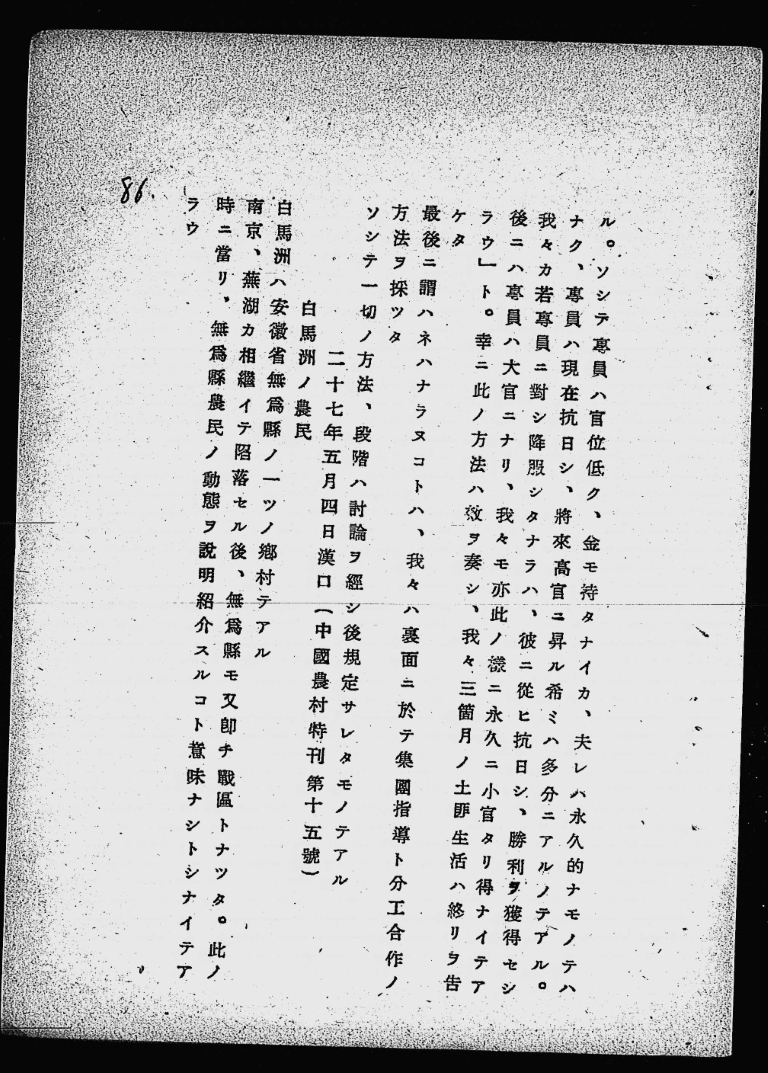 ル。ソシテ專員ハ官位低ク、金モ持タナイカ、夫レハ永久的ナモノテハ
ナク、專員ハ現在抗日シ、將來高官ニ昇ル希ミハ多分ニアルノテアル。
我々カ若專員ニ對シ降服シタナラハ、彼ニ從ヒ抗日シ、勝利ヲ獲得セシ
後ニハ專員ハ大官ニナリ、我々モ亦此ノ樣ニ永久ニ小官タリ得ナイテア
ラウ」ト。幸ニ此ノ方法ハ效ヲ奏シ、我々三箇月ノ土匪生活ハ終リヲ告
ケタ
最後ニ謂ハネハナラヌコトハ、我々ハ裏面ニ於テ集團指導ト分工合作ノ
方法ヲ採ツタ
ソシテ一切ノ方法、段階ハ討論ヲ經シ後規定サレタモノテアル
二十七年五月四日漢口(中國農村特刊第十五號)
白馬洲ノ農民
白馬洲ハ安徽省無爲縣ノ一ツノ鄕村テアル
南京、蕪湖カ相繼イテ陷落セル後、無爲縣モ又卽チ戰區トナツタ。此ノ
時ニ當リ、無爲縣農民ノ動態ヲ說明紹介スルコト意味ナシトシナイテア
ラウ
86.